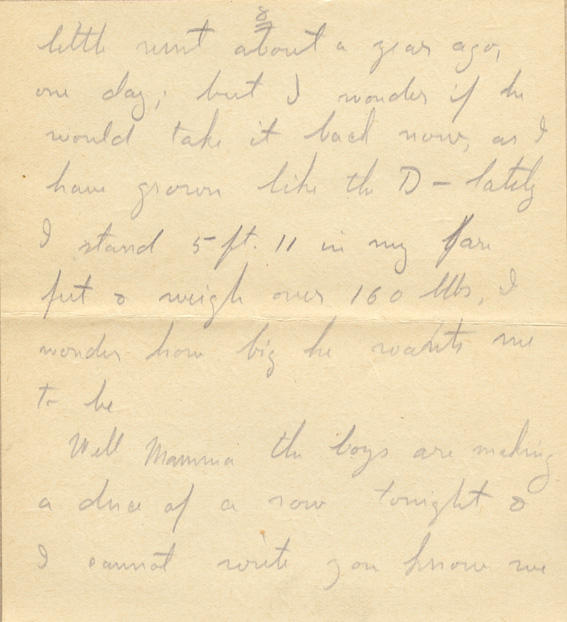 8
little runt about a year ago,
one day; but I wonder if he
would take it back now, as I
have grown like the D - lately
I stand 5 ft. 11 in my bare
feet & weigh over 160 lbs, I
wonder how big he wants me
to be
Well Mamma the boys are making
a duce of a row tonight &
I cannot write you know me